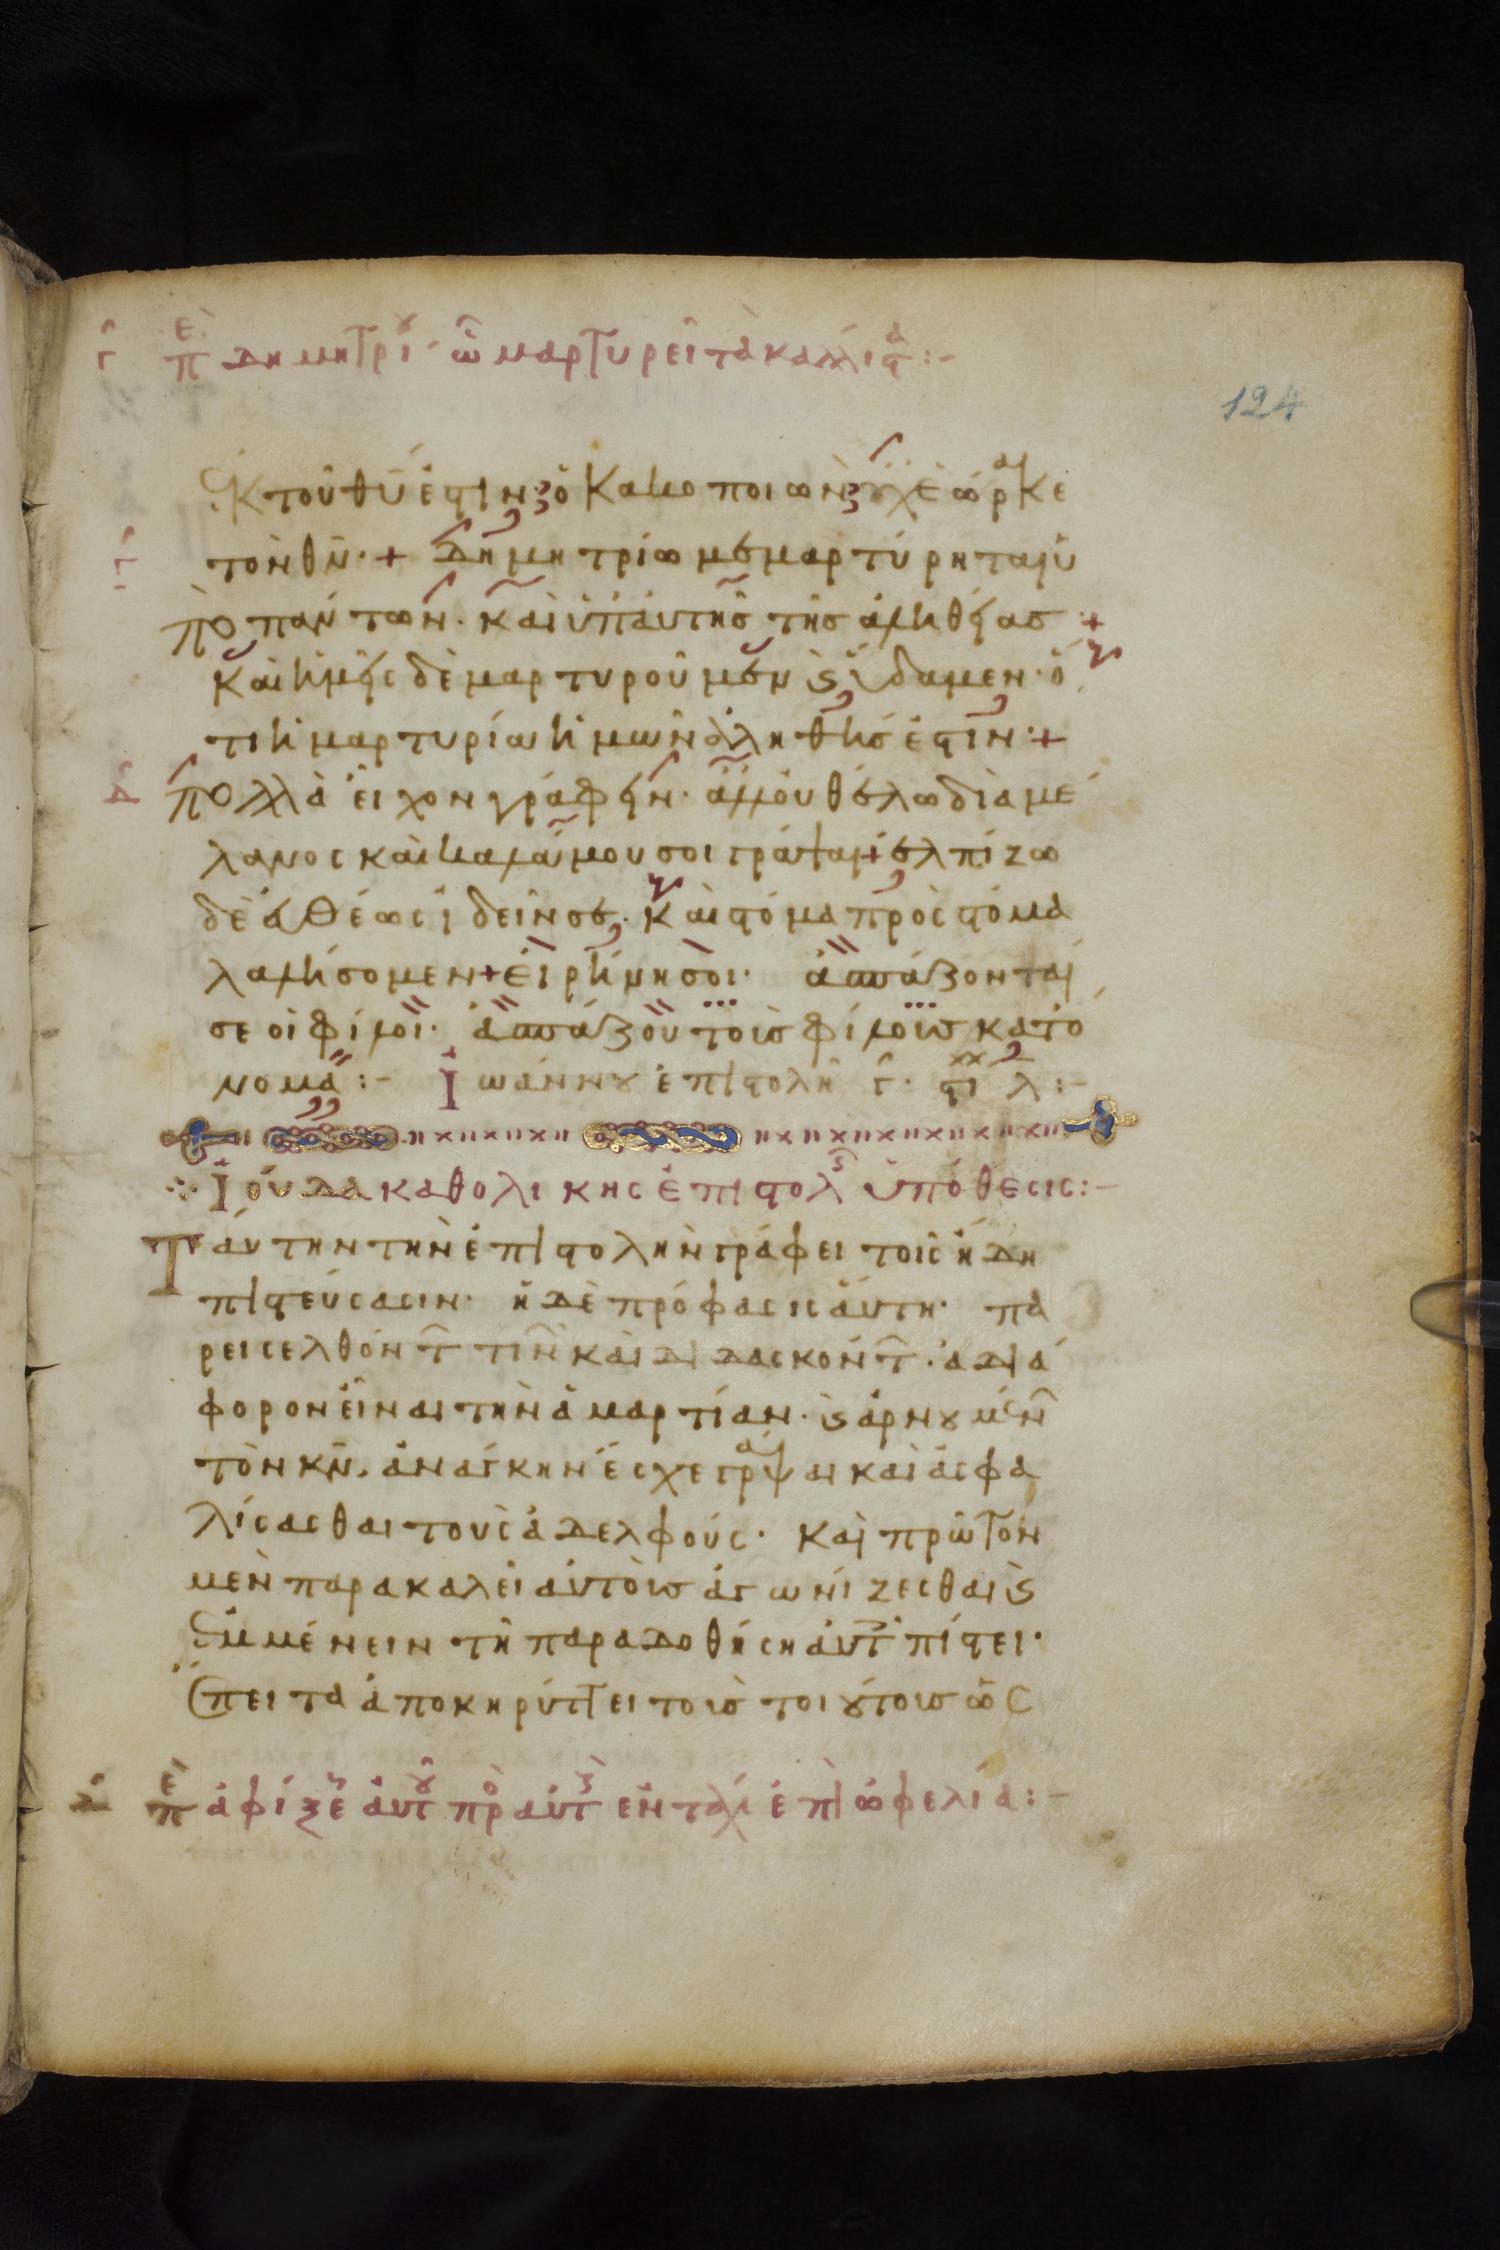 γ̑ πὲ Δημητρίου· ὧ μαρτυρεῖ τὰ κάλλιστα:-
124
ἐκ τοῦ θῡ ἐστιν· ὁ κακοποιῶν οὐχ ἑώρακε
τὸν θν̄· + Δημητρίω μεμαρτύρηται ὑ
πὸ πάντων· καὶ ὑπ' ἀυτῆς τῆς ἀληθείας +
καὶ ἡμεῖς δὲ μαρτυροῦμεν ϗ οἴδαμεν· ὅ
τι ἡ μαρτυρία ἡμῶν ἀληθής ἐστιν· +
Δ̑ πολλὰ εἶχον γράφειν· ἀλλ' οὐ θέλω διὰ μέ
λανος καὶ καλάμου σοι γράψαι + ἐλπίζω
δὲ εὐθέως ἰδεῖν σε· καὶ στόμα πρὸς στόμα
λαλήσομεν + εἰρήνη σοι· ἀσπάζονταί
σε οἱ φίλοι· ἀσπάζου τοὺς φίλους κατ' ὄ
νομα:- Ἰωάννου ἐπιστολὴ γ̑· στι λ:-
Ἰούδα καθολικῆς ἐπιστολῆς ὑπόθεσις:-
Ταύτην τὴν ἐπιστολὴν γράφει τοῖς ἤδη
πιστεύσασιν· ἡ δὲ πρόφασις αὕτη· πα
ρεισελθόντων τινῶν καὶ διδασκόντων· ἀδιά
φορον εἶναι τὴν ἁμαρτίαν· ϗ ἀρνουμένων
τὸν κν̄, ἀνάγκην ἔσχε γράψαι καὶ ἀσφα
λίσασθαι τοὺς ἀδελφούς· καὶ πρῶτον
μὲν παρακαλεῖ αὐτοὺς ἀγωνίζεσθαι ϗ
ἐμμένειν τῇ παραδοθείσῃ αὐτοῖς πίστει·
ἔπειτα ἀποκηρύττει τοὺς τοιούτους ὡς
πὲ ἀφίξεως αὐτοῦ πρὸς αὐτοὺς ἐν τάχει ἐπ' ὠφελία:-